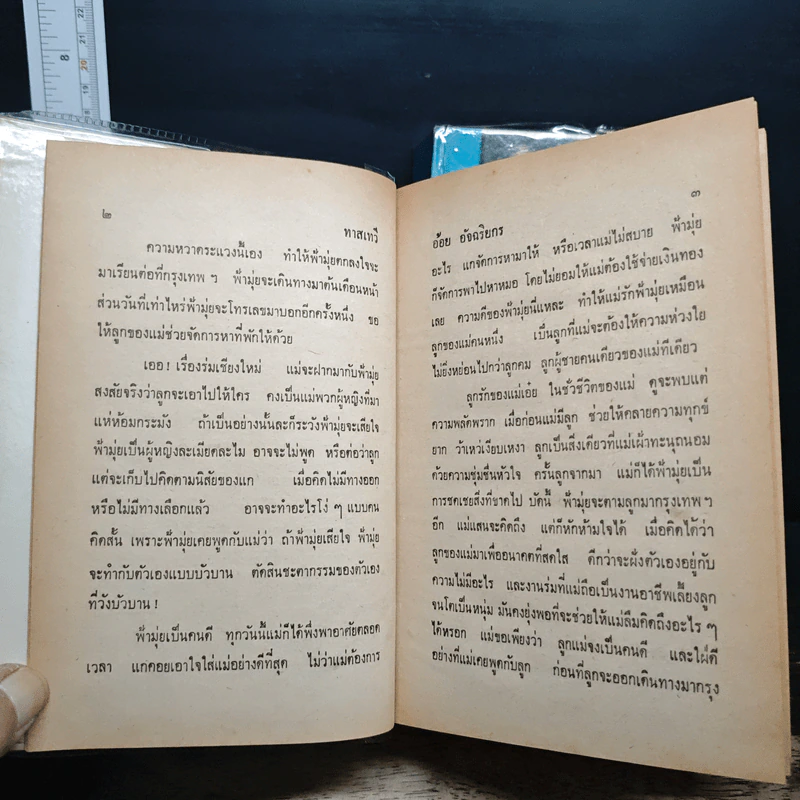 8
22
21
20
19
๒
ทาสเทวี
ความหวาดระแวงนี้เอง ทำให้ฟ้ามุ่ยตกลงใจจะ
มาเรียนต่อที่กรุงเทพ ฯ ฟ้ามุ่ยจะเดินทางมาต้นเดือนหน้า
ส่วนวันที่เท่าไหร่ฟ้ามุ่ยจะโทรเลขมาบอกอีกครั้งหนึ่ง ขอ
ให้ลูกของแม่ช่วยจัดการหาที่พักให้ด้วย
เออ ! เรื่องร่มเชียงใหม่ แม่จะฝากมากับฟ้ามุ่ย
สงสัยจริงว่าลูกจะเอาไปให้ใคร คงเป็นแม่พวกผู้หญิงที่มา
แห่ห้อมกระมัง ถ้าเป็นอย่างนั้นละก็ระวังฟ้ามุ่ยจะเสียใจ
ฟ้ามุ่ยเป็นผู้หญิงละเมียดละไม อาจจะไม่พูด หรือต่อว่าลูก
แต่จะเก็บไปคิดตามนิสัยของแก เมื่อคิดไม่มีทางออก
หรือไม่มีทางเลือกแล้ว อาจจะทำอะไรโง่ ๆ แบบคน
คิดสั้น เพราะฟ้ามุ่ยเคยพูดกับแม่ว่า ถ้าฟ้ามุ่ยเสียใจ ฟ้ามุ่ย
จะทำกับตัวเองแบบบัวบาน ตัดสินชะตากรรมของตัวเอง
ที่วังบัวบาน !
ฟ้ามุ่ยเป็นคนดี ทุกวันนี้แม่ก็ได้พึ่งพาอาศัยตลอด
เวลา แกคอยเอาใจใส่แม่อย่างดีที่สุด ไม่ว่าแม่ต้องการ
๓
อ้อย อัจฉริยกร
อะไร แกจัดการหามาให้ หรือเวลาแม่ไม่สบาย ฟ้ามุ่ย
ก็จัดการพาไปหาหมอ โดยไม่ยอมให้แม่ต้องใช้จ่ายเงินทอง
เลย ความดีของฟ้ามุ่ยนี่แหละ ทำให้แม่รักฟ้ามุ่ยเหมือน
ลูกของแม่คนหนึ่ง เป็นลูกที่แม่จะต้องให้ความห่วงใย
ไม่ยิ่งหย่อนไปกว่าลูกคม ลูกผู้ชายคนเดียวของแม่ทีเดียว
ลูกรักของแม่เอ๋ย ในชั่วชีวิตของแม่ ดูจะพบแต่
ความพลัดพราก เมื่อก่อนแม่มีลูก ช่วยให้คลายความทุกข์
ยาก ว้าเหว่เงียบเหงา ลูกเป็นสิ่งเดียวที่แม่เฝ้าทะนุถนอม
ด้วยความชุ่มชื่นหัวใจ ครั้นลูกจากมา แม่ก็ได้ฟ้ามุ่ยเป็น
การชดเชยสิ่งที่ขาดไป บัดนี้ ฟ้ามุ่ยจะตามลูกมากรุงเทพ ฯ
อีก แม่แสนจะคิดถึง แต่ก็หักห้ามใจได้ เมื่อคิดได้ว่า
ลูกของแม่มาเพื่ออนาคตที่สดใส ดีกว่าจะฝังตัวเองอยู่กับ
ความไม่มีอะไร และงานร่มที่แม่ถือเป็นงานอาชีพเลี้ยงลูก
จนโตเป็นหนุ่ม มันคงยุ่งพอที่จะช่วยให้แม่ลืมคิดถึงอะไร ๆ
ได้หรอก แม่ขอเพียงว่า ลูกแม่จงเป็นคนดี และใฝ่ดี
อย่างที่แม่เคยพูดกับลูก ก่อนที่ลูกจะออกเดินทางมากรุง